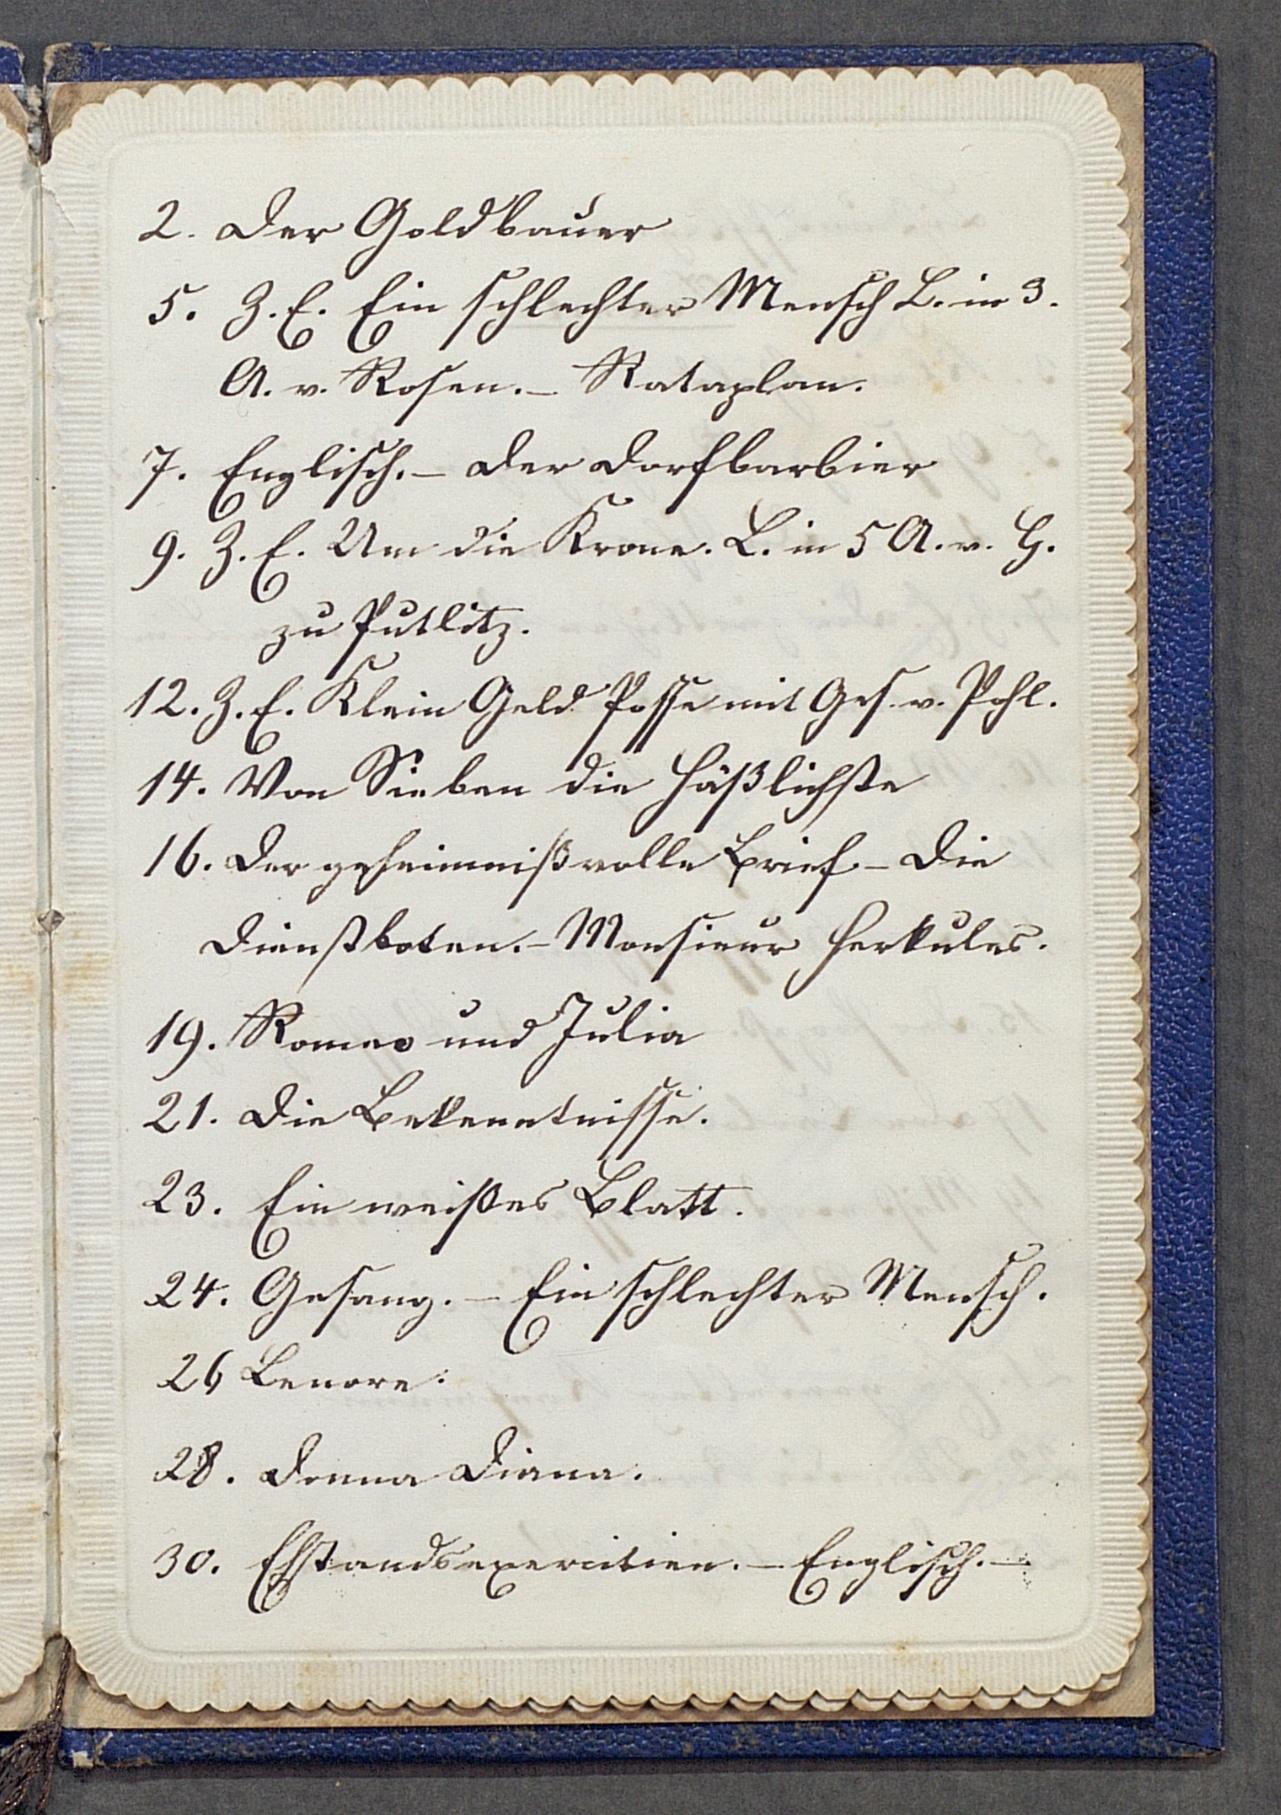 2. Der Goldbauer
5. Z. E. Ein schlechter Mensch L. in 3.
A. v. Rosen. – Rataplan.
7. Englisch. – Der Dorfbarbier
9. Z. E. Um die Krone. L. in 5 A. v. G.
zu Putlitz.
12. Z. E. Klein Geld Posse mit Ges. v. Pohl.
14. Von Sieben die Häßlichste
16. Der geheimnißvolle Brief – Die
Dienstboten. – Monsieur Herkules.
19. Romeo und Julia
21. Die Bekenntnisse.
23. Ein weißes Blatt.
24. Gesang. – Ein schlechter Mensch.
26 Lenore.
28. Donna Diana.
30. Ehstandsexercitien. – Englisch. –